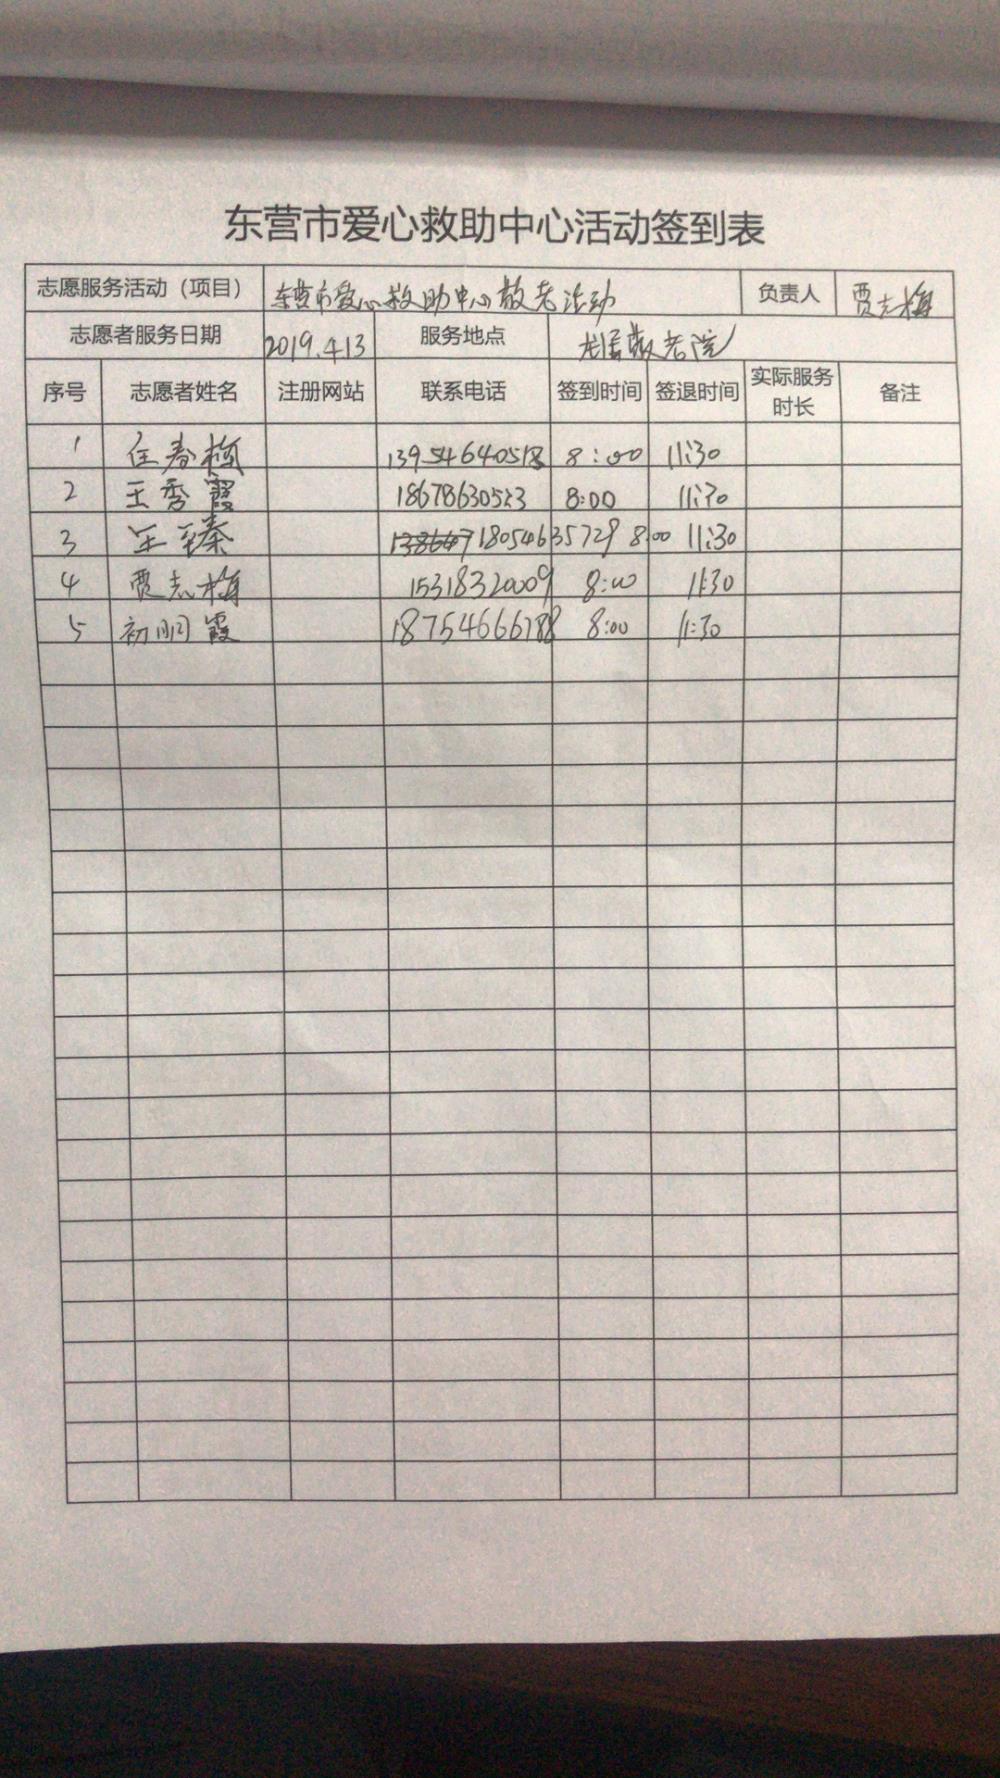 东营市爱心救助中心活动签到表
志愿服务活动（项目） 东营市爱心救助中心敬老活动 负责人 贾志梅
志愿者服务日期 2019.4.13 服务地点 敬老院
序号 志愿者姓名 注册网站 联系电话 签到时间 签退时间 实际服务时长 备注
1 春梅 13954640518 8:00 11:30
2 王秀霞 18678630523 8:00 11:30
3 18054635729 8:00 11:30
4 贾志梅 15318320009 8:00 11:30
5 初明霞 18754666788 8:00 11:30